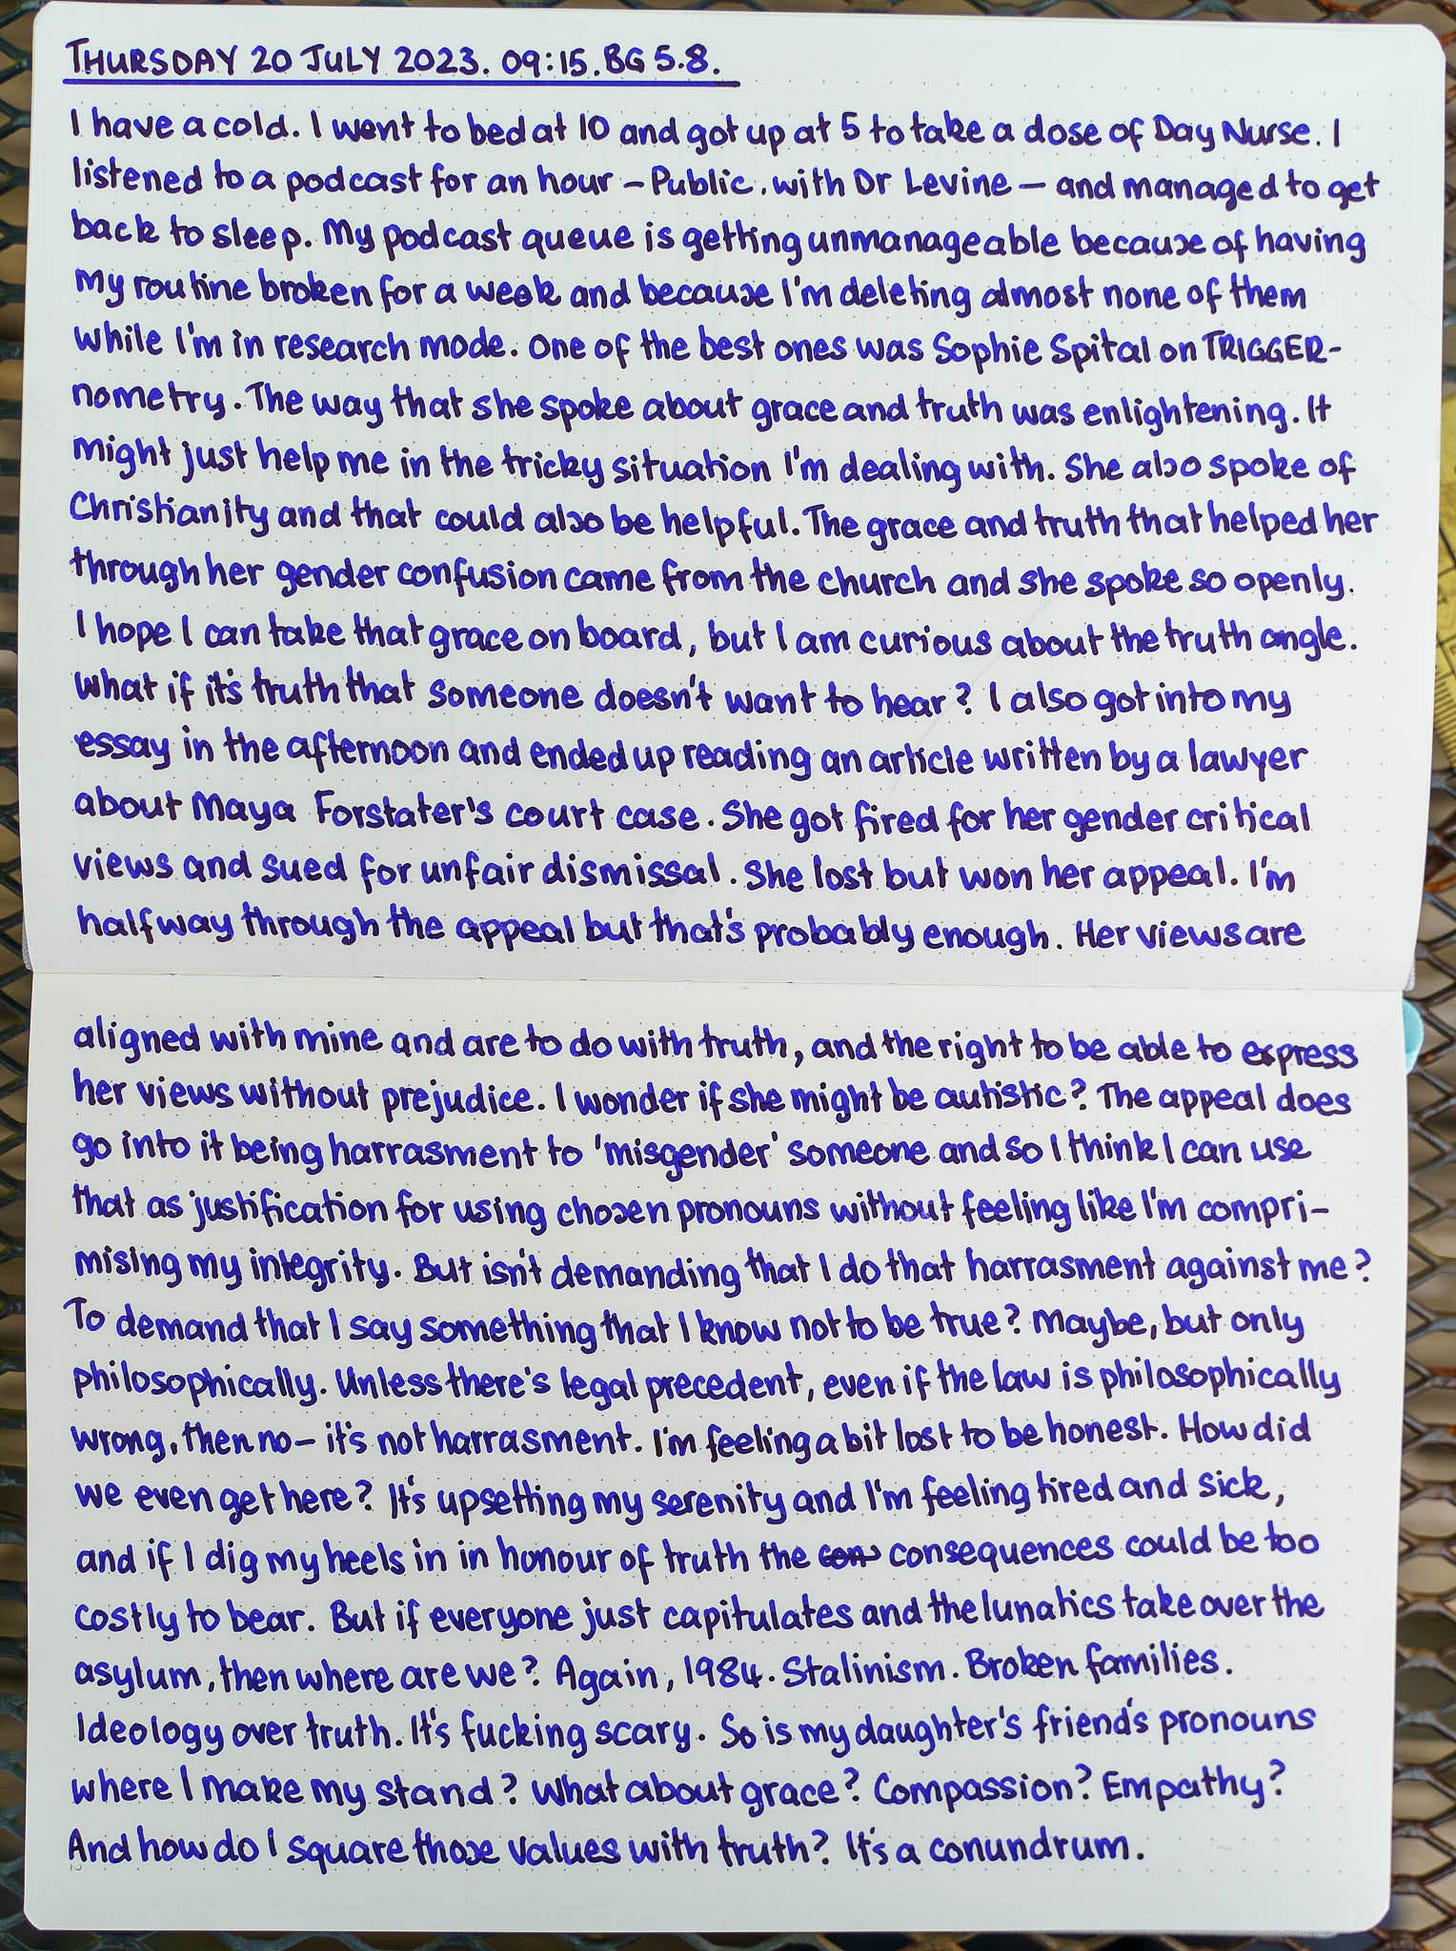 THURSDAY 20 JULY 2023. 09:15. BG 5.8.
I have a cold. I went to bed at 10 and got up at 5 to take a dose of Day Nurse. I
listened to a podcast for an hour – Public. with Dr Levine – and managed to get
back to sleep. My podcast queue is getting unmanageable because of having
my routine broken for a week and because I'm deleting almost none of them
while I'm in research mode. One of the best ones was Sophie Spital on TRIGGER-
nometry. The way that she spoke about grace and truth was enlightening. It
might just help me in the tricky situation I'm dealing with. She also spoke of
Christianity and that could also be helpful. The grace and truth that helped her
through her gender confusion came from the church and she spoke so openly.
I hope I can take that grace on board, but I am curious about the truth angle.
What if it's truth that someone doesn't want to hear? I also got into my
essay in the afternoon and ended up reading an article written by a lawyer
about Maya Forstater's court case. She got fired for her gender critical
views and sued for unfair dismissal. She lost but won her appeal. I'm
halfway through the appeal but that's probably enough. Her views are
aligned with mine and are to do with truth, and the right to be able to express
her views without prejudice. I wonder if she might be autistic? The appeal does
go into it being harrasment to 'misgender' someone and so I think I can use
that as justification for using chosen pronouns without feeling like I'm compri-
mising my integrity. But isn't demanding that I do that harrasment against me?
To demand that I say something that I know not to be true? Maybe, but only
philosophically. Unless there's legal precedent, even if the law is philosophically
wrong, then no – it's not harrasment. I'm feeling a bit lost to be honest. How did
we even get here? It's upsetting my serenity and I'm feeling tired and sick,
and if I dig my heels in in honour of truth the con consequences could be too
costly to bear. But if everyone just capitulates and the lunatics take over the
asylum, then where are we? Again, 1984. Stalinism. Broken families.
Ideology over truth. It's fucking scary. So is my daughter's friend's pronouns
where I make my stand? What about grace? Compassion? Empathy?
And how do I square those values with truth? It's a conundrum.